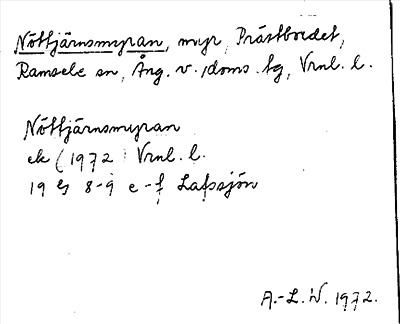 Nöttjärnsmyran, myr, Prästbordet,
Ramsele sn, Ång. v. doms. tg, Vrnl. l.
Nöttjärnsmyran
ek (1972 Vrnl. l.
19 G 8-9 e-f Lafssjön
A.-L. W. 1972.